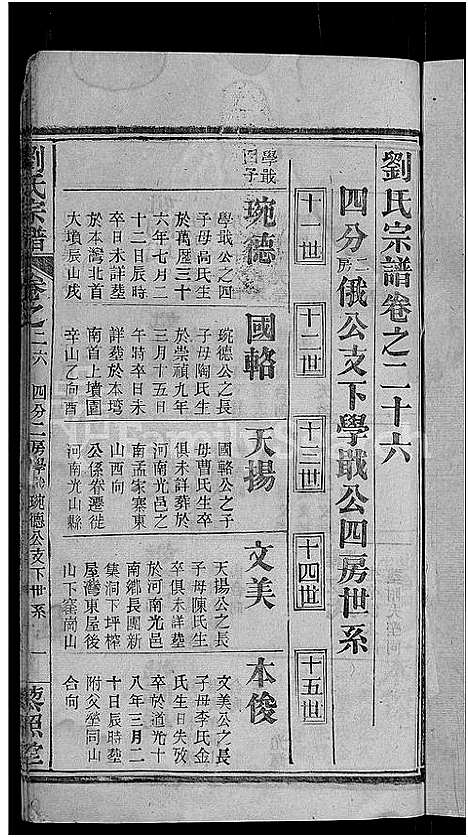 劉氏宗譜卷之二十六
四分二房俄公支下學戢公四房世系
十一世
十二世
十三世
十四世
十五世
學戢四子
琬德
學戢公之四
子母高氏生
於萬厯三十
六年七月二
十二日辰時
卒日未詳塟
於本灣北首
大墳辰山戌
國輅
琬德公之長
子母陶氏生
於崇禎九年
三月十五日
午時卒日未
詳塟於本塆
南首上墳園
辛山乙向酉
天揚
國輅公之子
母曹氏生卒
俱未詳葬於
河南光邑之
南孟家寨東
山西向
公係眷遷徙
河南光山縣
文美
天揚公之長
子母陳氏生
卒俱未詳塟
於河南光邑
南鄉長團新
集洞下坪榨
屋灣東屋後
山下窪崗山
本俊
文美公之長
子母李氏金
氏生日失攷
卒於道光十
八年三月二
十日辰時塟
附父塋同山
合向
劉氏宗譜
卷之二六
四分二房學戢琬德公支下世系
一
藜照堂